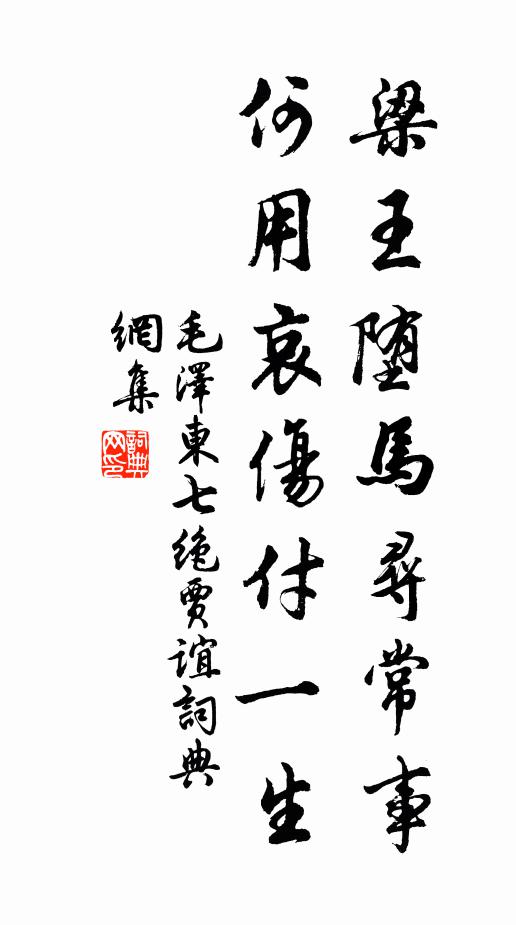 梁王堕馬尋常事
何用哀傷付一生
毛澤東七绝賈誼詞典
網集
詞典
网印